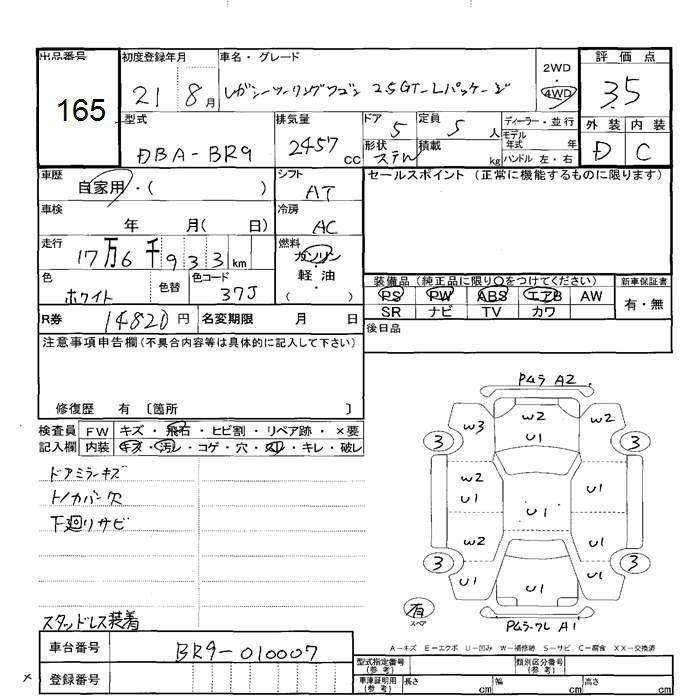 出品番号 165
初度登録年月 21 8月
車名・グレード レガシーツーリングワゴン 2.5GT-Lパッケージ
2WD・4WD
評価点 3.5
外装 D 内装 C
型式 DBA-BR9
排気量 2457cc
ドア 5 定員 5人
形状 ステW 積載 kg
ディーラー・並行
モデル年式 年
ハンドル 左・右
車歴 自家用・( )
シフト AT
セールスポイント (正常に機能するものに限ります)
車検 年 月( 日)
冷房 AC
走行 17万6千933km
燃料 ガソリン・軽油 ( )
色 ホワイト 色替 色コード 37J
装備品 (純正品に限り○をつけてください) 新車保証書
PS PW ABS エアB AW 有・無
SR ナビ TV カワ
R券 14820円 名変期限 月 日
後日品
注意事項申告欄(不具合内容等は具体的に記入して下さい)
修復歴 有 〔箇所 〕
検査員記入欄
FW キズ・飛石・ヒビ割・リペア跡・×要
内装 キズ・汚レ・コゲ・穴・スリ・キレ・破レ
ドアミラーキズ
トノカバー欠
下廻りサビ
スタッドレス装着
PムラA2
W2
U1
W3 U1
3 3
W2 U1
U1
U1
W2 U1
3 3
U1 U1 U1
有 スペア
Pムラ-ワレ A1
A-キズ E-エクボ U-凹み W-補修跡 S-サビ C-腐食 XX-交換済
車台番号 BR9-010007
登録番号
×
型式指定番号(参考) 類別区分番号(参考)
車庫証明用(参考) 長さ cm 幅 cm 高さ cm